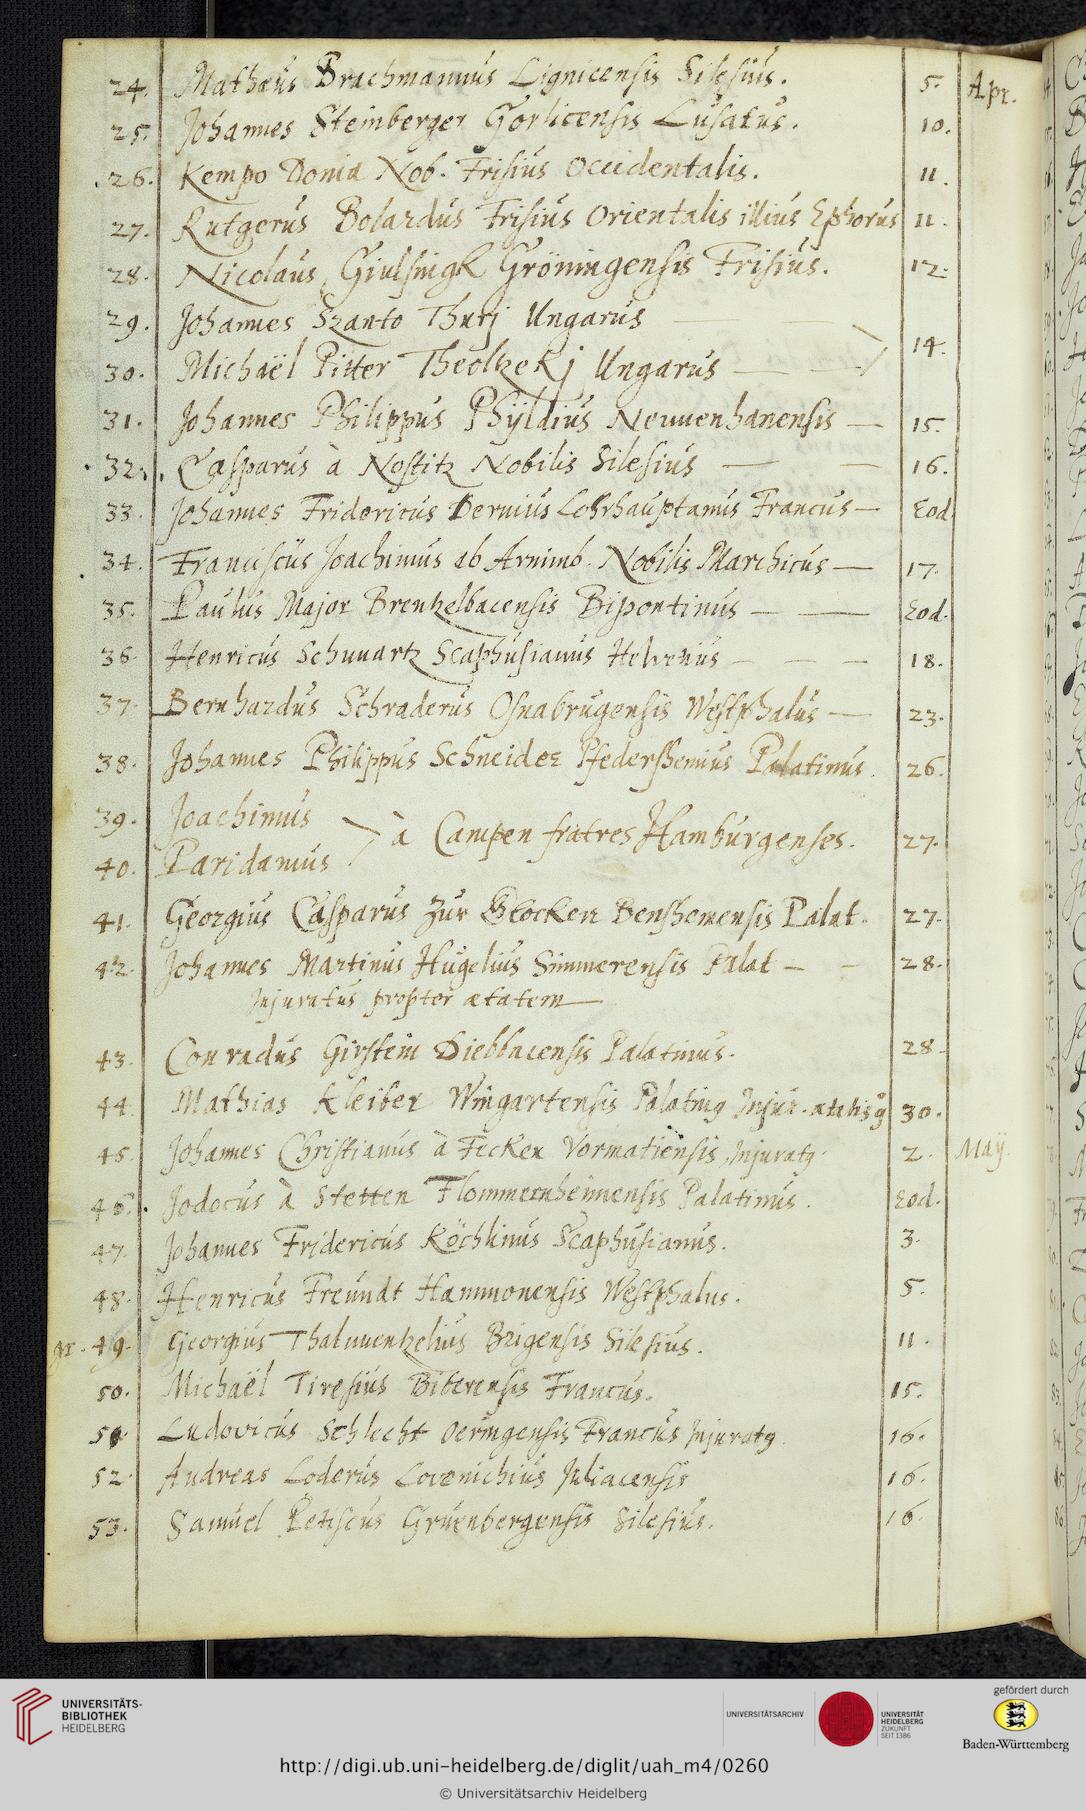 24. Matheus Brachmannus Lignicensis Silesius. 5. Apr.
25. Johannes Steinberger Gorlicensis Lusatus. 10.
26. Kempo Donia Nob. Frisius Occidentalis. 11.
27. Rutgerus Bolardus Frisius Orientalis illius Ephorus 11.
28. Nicolaus Giulsnigk Gröningensis Frisius. 12.
29. Johannes Szanto Thurj Ungarus
14.
30. Michaël Pitter Theoltzekj Ungarus
31. Johannes Philippus Phÿldius Neuuenhanensis 15.
32. Casparus à Nostitz Nobilis Silesius 16.
33. Johannes Fridericus Dernius Lohrhauptanus Francus Eod
34. Franciscus Joachimus ab Arnimb. Nobilis Marchicus 17.
35. Paulus Major Brentzelbacensis Bipontinus Eod.
36. Henricus Schuuartz Scaphusianus Helvetius 18.
37. Bernhardus Schraderus Osnabrugensis Westphalus 23.
38. Johannes Philippus Schneider Pfedersheimius Palatinus. 26.
39. Joachimus
à Campen fratres Hamburgenses. 27.
40. Paridanus
41. Georgius Casparus zur Glocken Benshemensis Palat. 27.
42. Johannes Martinus Hugelius Simmerensis Palat 28.
Injuratus propter ætatem
43. Conradus Girstein Diebbacensis Palatinus. 28.
44. Mathias Kleiber Wingartensis Palatin9 Injur. ætatis 30.
45. Johannes Christianus à Ficken Vormatiensis, Injurat9. 2. Maÿ.
46. Jodocus à Stetten Flommernheimensis Palatinus. Eod.
47. Johannes Fridericus Köchlinus Scaphusianus. 3.
48. Henricus Freundt Hammonensis Westphalus. 5.
gr. 49. Georgius Thaluuentzelius Brigensis Silesius. 11.
50. Michaël Tiresius Biberensis Francus. 15.
51. Ludovicus Schlecht Oeringensis Francus Injurat9 16.
52. Andreas Loderus Lovenichius Juliacensis 16.
53. Samuel Petiscus Gruenbergensis Silesius. 16.
UNIVERSITÄTS-
BIBLIOTHEK
HEIDELBERG
UNIVERSITÄTSARCHIV
UNIVERSITÄT
HEIDELBERG
ZUKUNFT
SEIT 1386
gefördert durch
Baden-Württemberg
http://digi.ub.uni-heidelberg.de/diglit/uah_m4/0260
© Universitätsarchiv Heidelberg